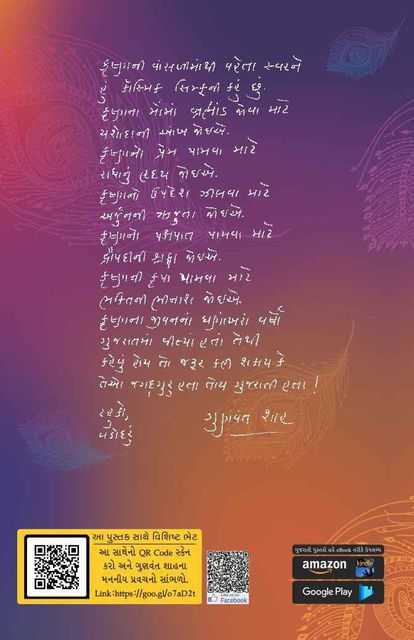 કૃષ્ણની વાંસળીમાંથી વહેતા સ્વરને
હું કોસ્મિક સિમ્ફની કહું છું.
કૃષ્ણના મોંમાં બ્રહ્માંડ જોવા માટે
યશોદાની આંખ જોઇએ.
કૃષ્ણનો પ્રેમ પામવા માટે
રાધાનું હૃદય જોઇએ.
કૃષ્ણનો ઉપદેશ ઝીલવા માટે
અર્જુનની ઋજુતા જોઇએ.
કૃષ્ણનો પક્ષપાત પામવા માટે
દ્રૌપદીની શ્રદ્ધા જોઇએ.
કૃષ્ણની કૃપા પામવા માટે
ભક્તિની ભીનાશ જોઇએ.
કૃષ્ણના જીવનનાં ઘણાંખરાં વર્ષો
ગુજરાતમાં વીત્યાં હતાં તેથી
કહેવું હોય તો જરૂર કહી શકાય કે
તેઓ જગદ્ગુરુ હતા તોય ગુજરાતી હતા !
ટહુકો,
વડોદરા
ગુણવંત શાહ
આ પુસ્તક સાથે વિશિષ્ટ ભેટ
આ સાથેનો QR Code સ્કેન
કરો અને ગુણવંત શાહના
મનનીય પ્રવચનો સાંભળો.
Link:https://goo.gl/o7aD2t
Facebook
ગુજરાતી પુસ્તકો હવે eBook તરીકે ઉપલબ્ધ
amazon kindle
Google Play